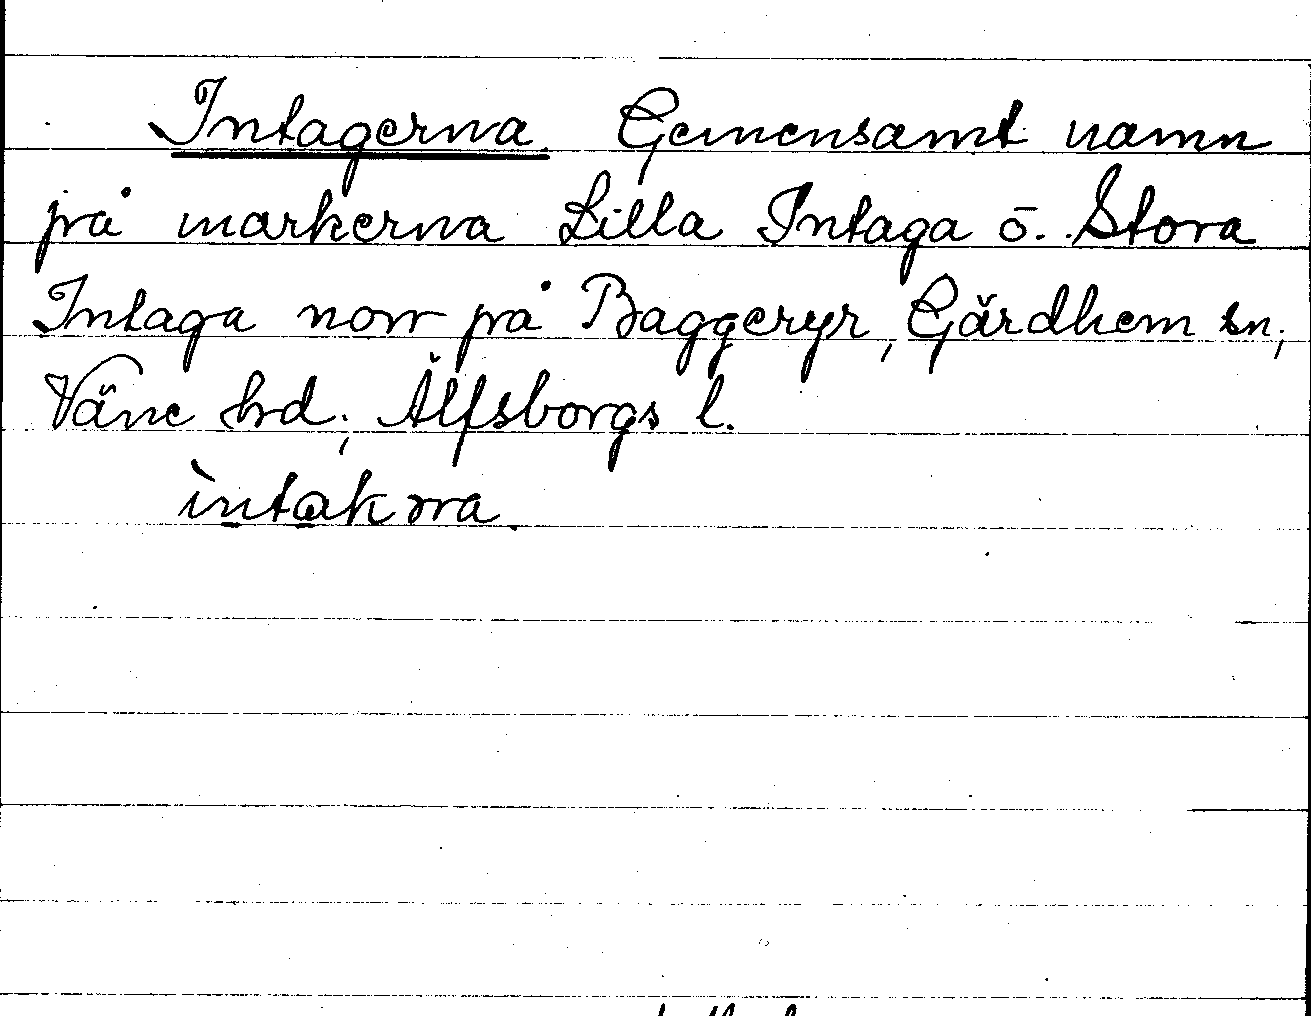 Intagerna. Gemensamt namn
på markerna Lilla Intaga o. Stora
Intaga norr på Baggeryr, Gärdhem sn,
Väne hrd, Älfsborgs l.
ìntakɔra.